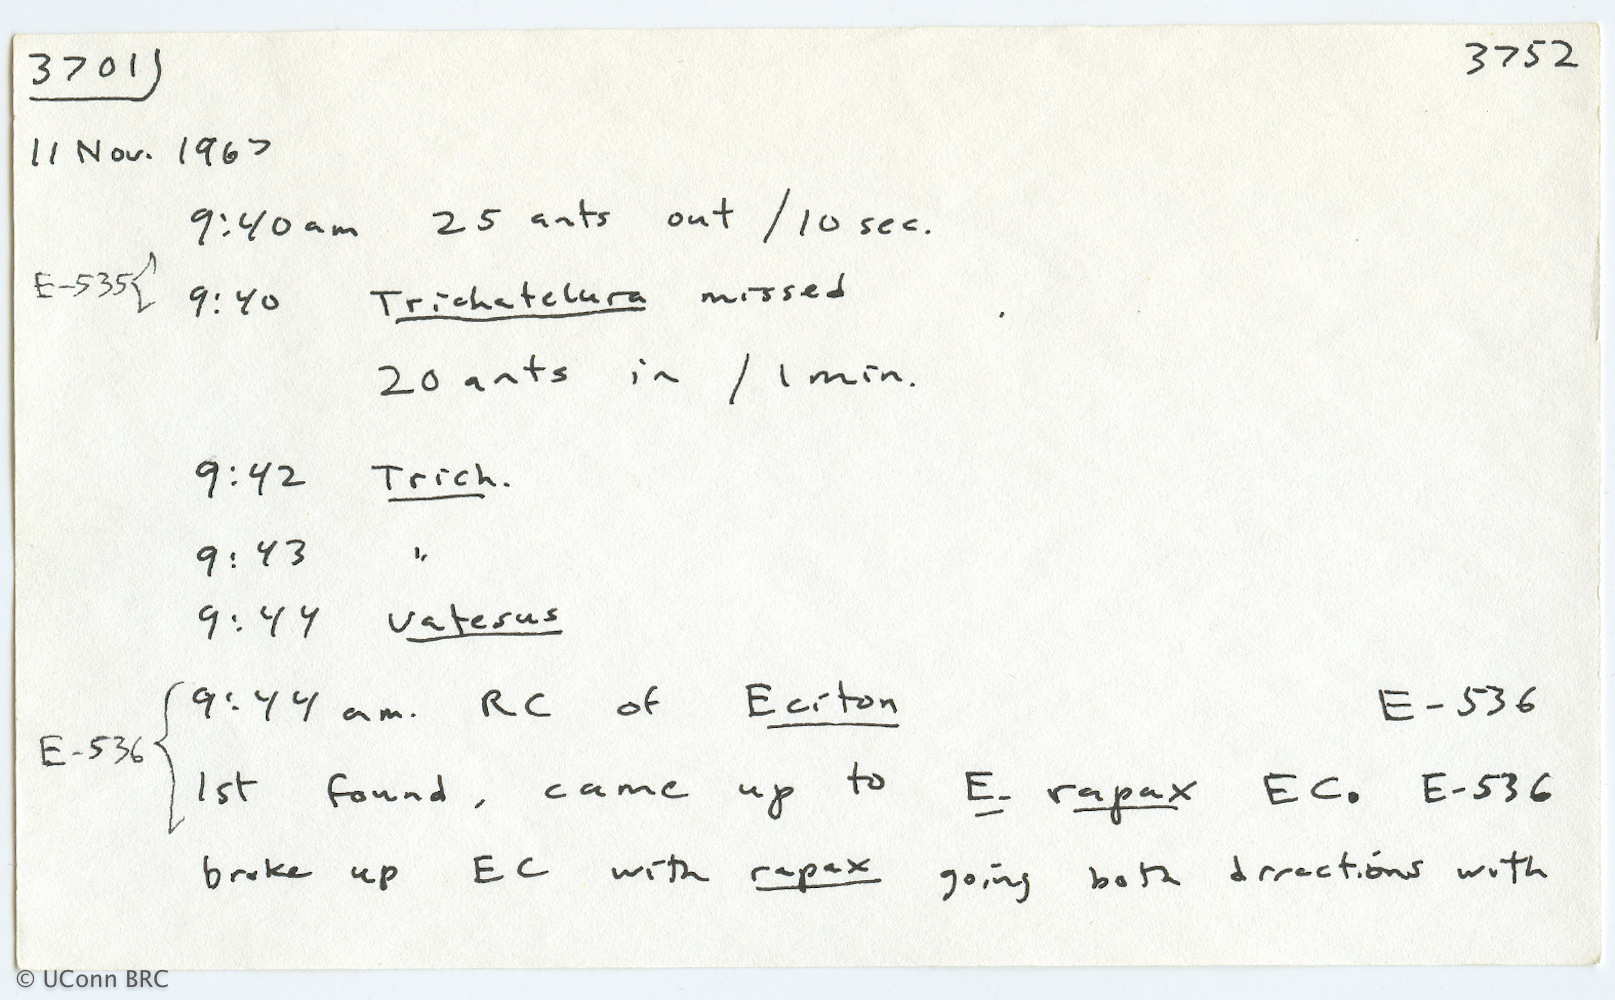 3701) 3752
11 Nov. 1967
9:40 am 25 ants out /10 sec.
E-535 { 9:40 Trichatelura missed
20 ants in / 1 min.
9:42 Trich.
9:43 "
9:44 Vatesus
9:44 am. RC of Eciton E-536
E-536 { 1st found, came up to E. rapax EC. E-536
broke up EC with rapax going both directions with
© UConn BRC